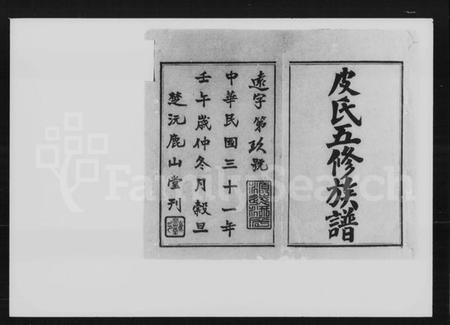 皮氏五修族譜
遠字第玖號
中華民國三十一年
壬午歲仲冬月穀旦
楚沅鹿山堂刊
FamilySearch